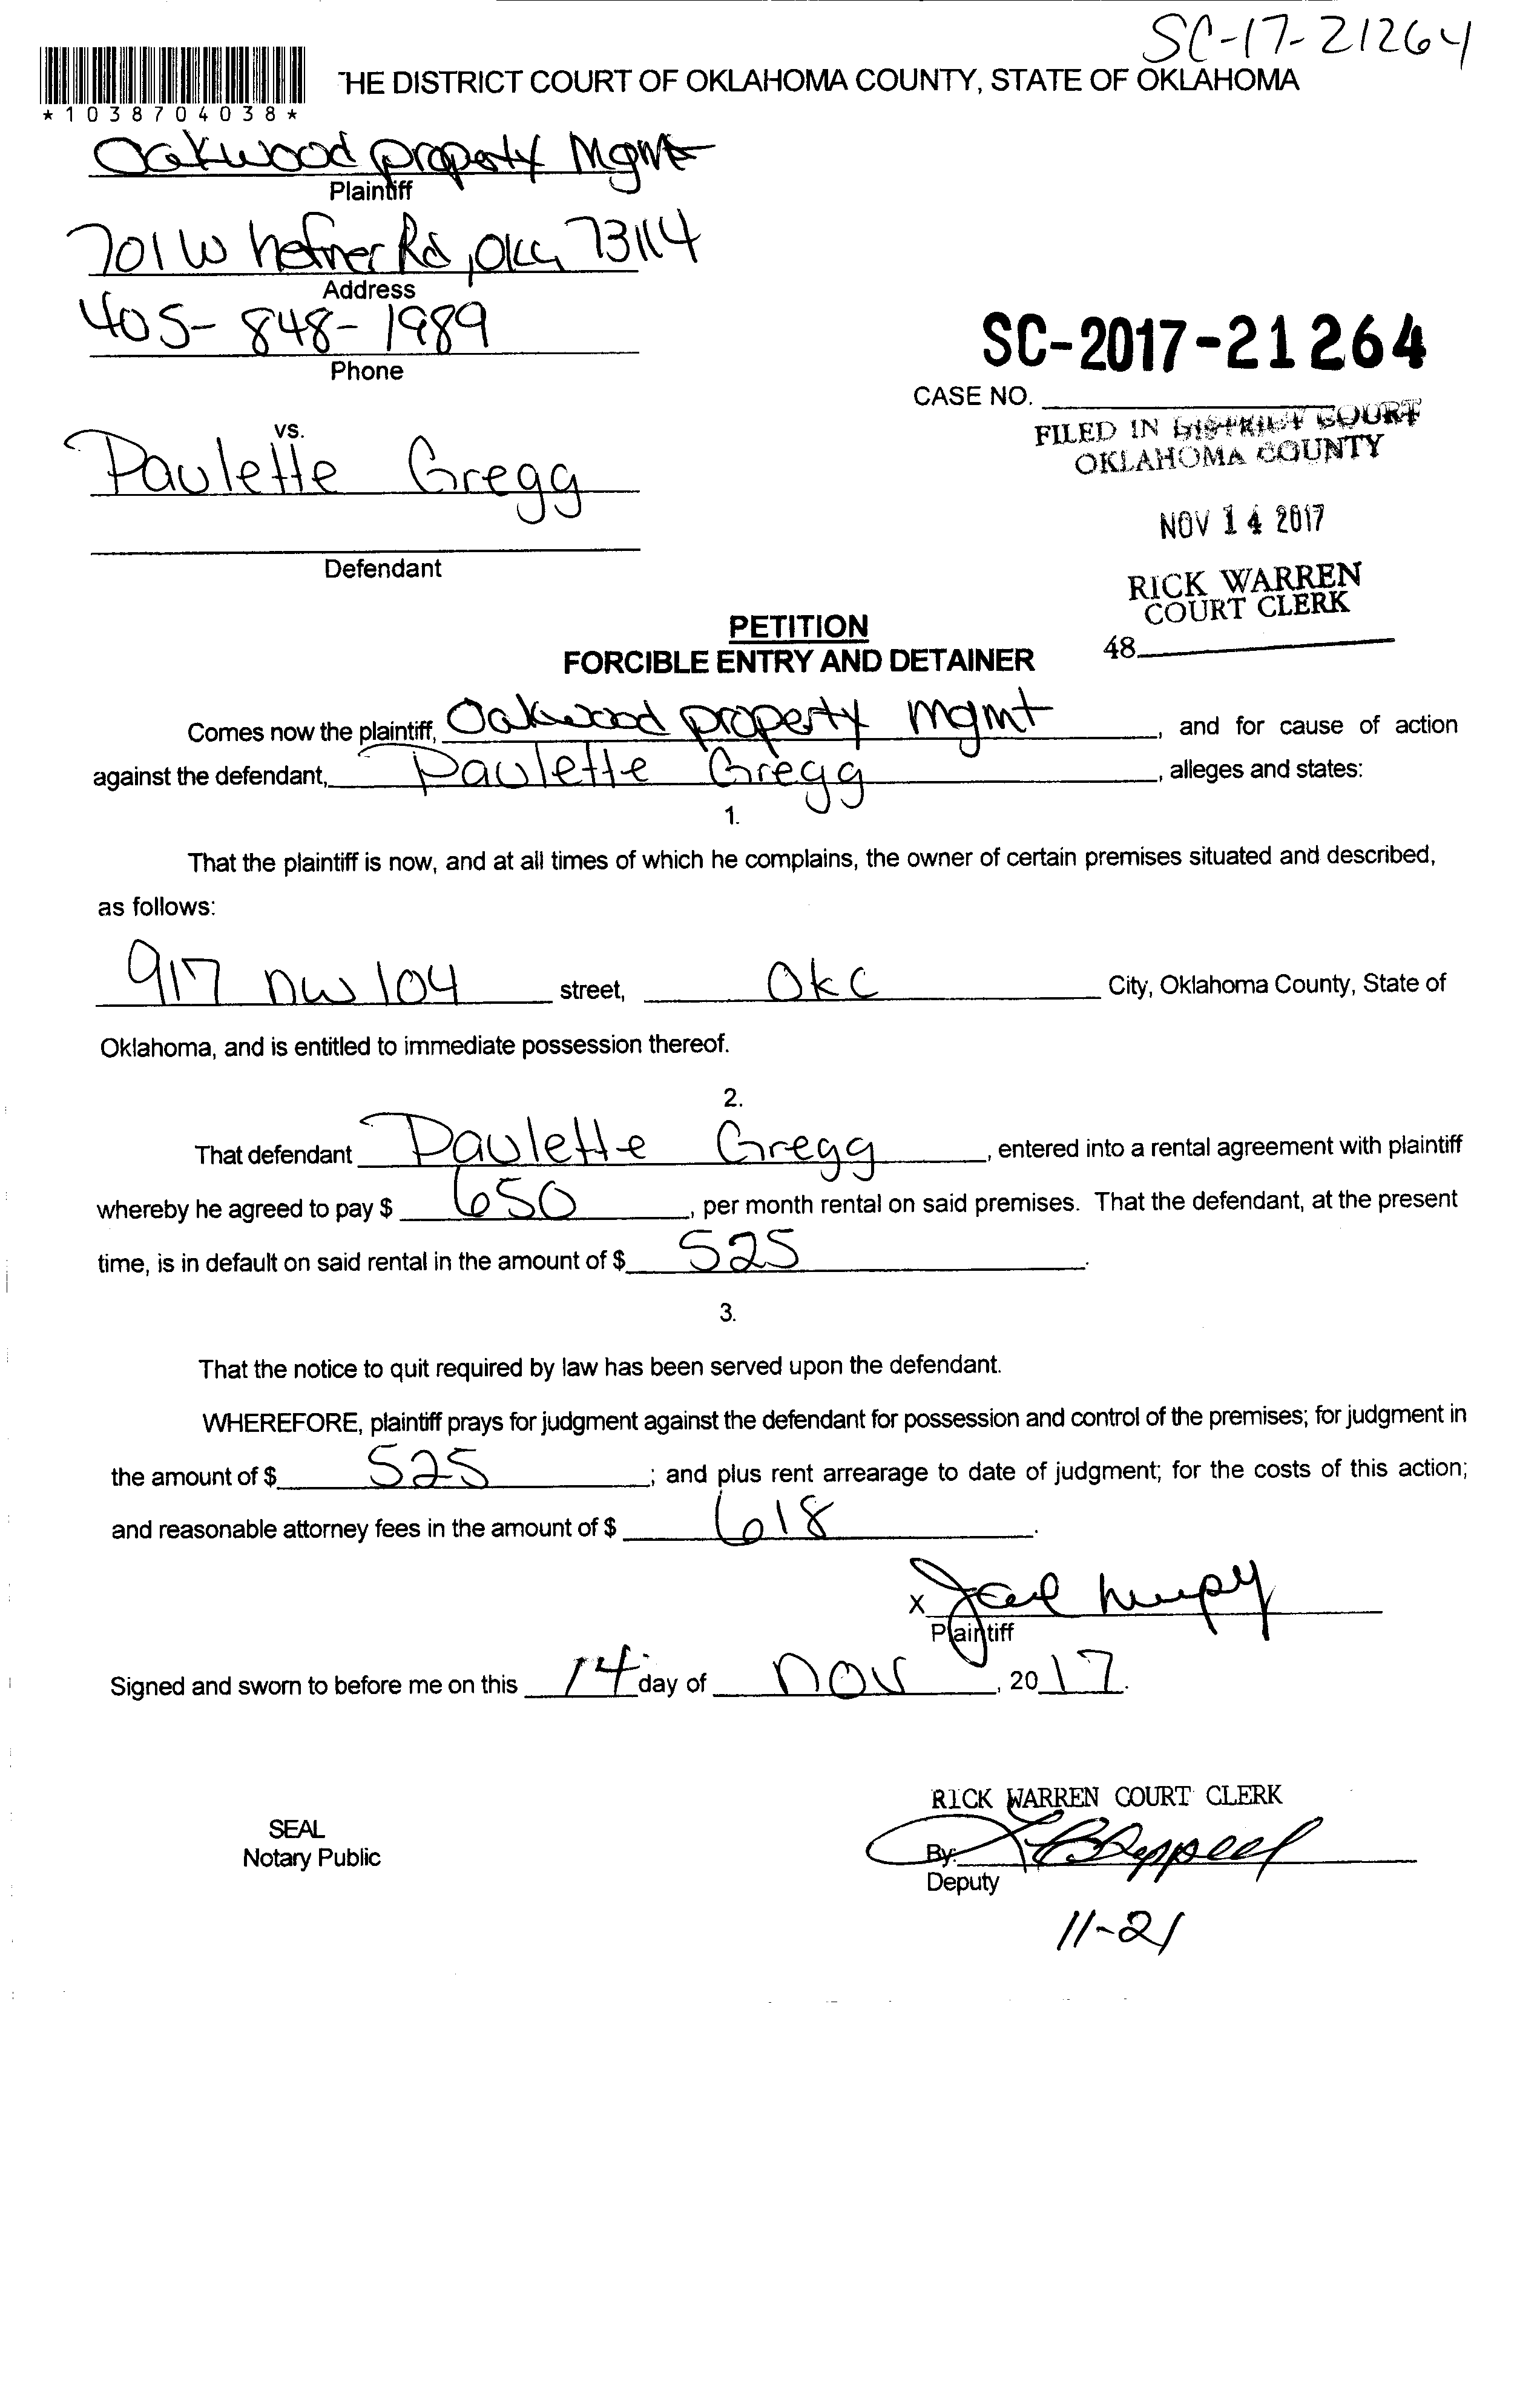 SC-17-21264
THE DISTRICT COURT OF OKLAHOMA COUNTY, STATE OF OKLAHOMA
*1038704038*
Oakwood property Mgmt
Plaintiff
701 W hefner Rd, OKC, 73114
Address
405-848-1989
Phone
SC-2017-21264
CASE NO.
FILED IN DISTRICT COURT
OKLAHOMA COUNTY
vs.
Paulette Gregg
NOV 14 2017
Defendant
RICK WARREN
COURT CLERK
48
PETITION
FORCIBLE ENTRY AND DETAINER
Comes now the plaintiff, Oakwood property mgmt, and for cause of action
against the defendant, Paulette Gregg, alleges and states:
1.
That the plaintiff is now, and at all times of which he complains, the owner of certain premises situated and described,
as follows:
917 NW 104 street, OKC City, Oklahoma County, State of
Oklahoma, and is entitled to immediate possession thereof.
2.
That defendant Paulette Gregg, entered into a rental agreement with plaintiff
whereby he agreed to pay $ 650, per month rental on said premises. That the defendant, at the present
time, is in default on said rental in the amount of $ 525.
3.
That the notice to quit required by law has been served upon the defendant.
WHEREFORE, plaintiff prays for judgment against the defendant for possession and control of the premises; for judgment in
the amount of $ 525; and plus rent arrearage to date of judgment; for the costs of this action;
and reasonable attorney fees in the amount of $ 618.
X
Plaintiff
Signed and sworn to before me on this 14 day of Nov, 2017.
RICK WARREN COURT CLERK
SEAL
Notary Public
By:
Deputy
11-21